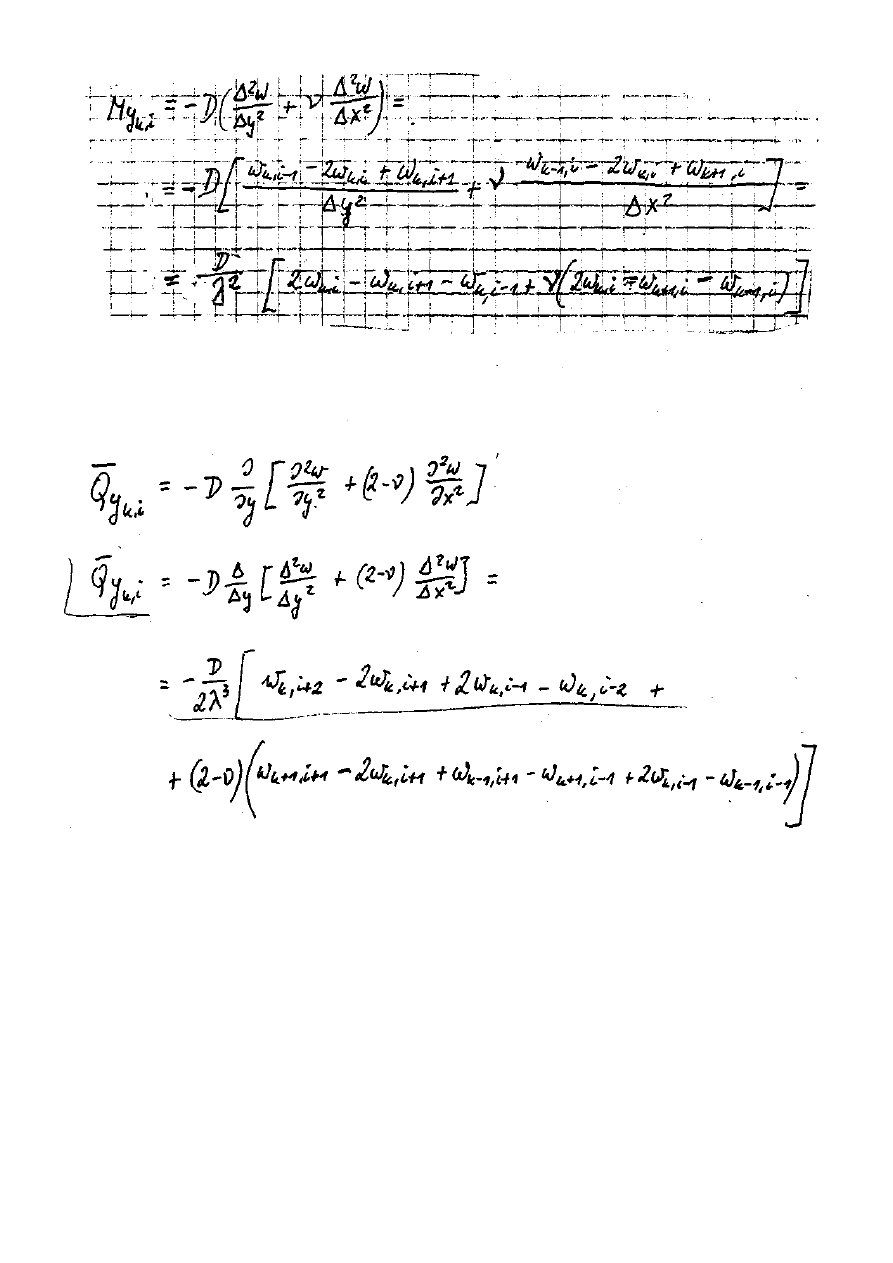 My_{k,i} = -D(Δ²w/Δy² + ν Δ²w/Δx²) =
= -D[(w_{k,i-1} - 2w_{k,i} + w_{k,i+1})/Δy² + ν (w_{k-1,i} - 2w_{k,i} + w_{k+1,i})/Δx²] =
= D/λ² [2w_{k,i} - w_{k,i+1} - w_{k,i-1} + ν(2w_{k,i} - w_{k+1,i} - w_{k-1,i})]
Q̄y_{k,i} = -D ∂/∂y [∂²w/∂y² + (2-ν) ∂²w/∂x²]
Q̄y_{k,i} = -D Δ/Δy [Δ²w/Δy² + (2-ν) Δ²w/Δx²] =
= -D/2λ³ [w_{k,i+2} - 2w_{k,i+1} + 2w_{k,i-1} - w_{k,i-2} +
+ (2-ν)(w_{k+1,i+1} - 2w_{k,i+1} + w_{k-1,i+1} - w_{k+1,i-1} + 2w_{k,i-1} - w_{k-1,i-1})]